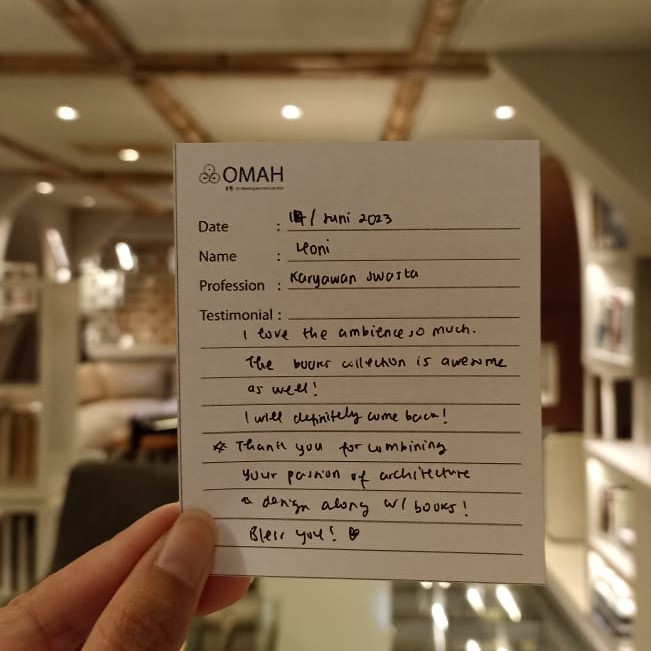 OMAH
Date : / Juni 2023
Name : Yoni
Profession : Karyawan swasta
Testimonial :
I love the ambience so much.
The books collection is awesome
as well!
I will definitely come back!
☆ Thank you for combining
your passion of architecture
& design along w/ books!
Bless you! ♡